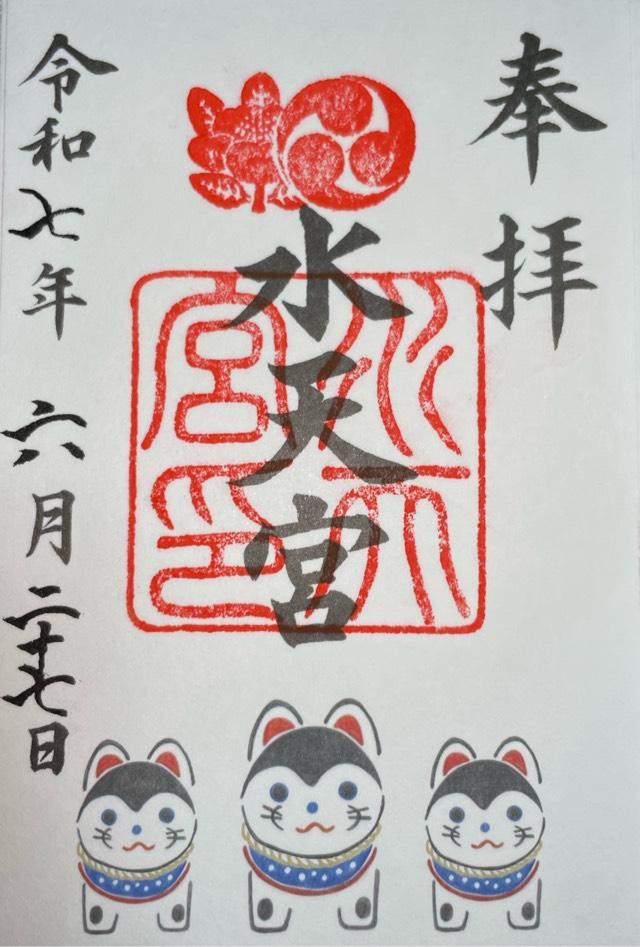 奉拝
水天宮
水天宮印
令和七年 六月二十七日